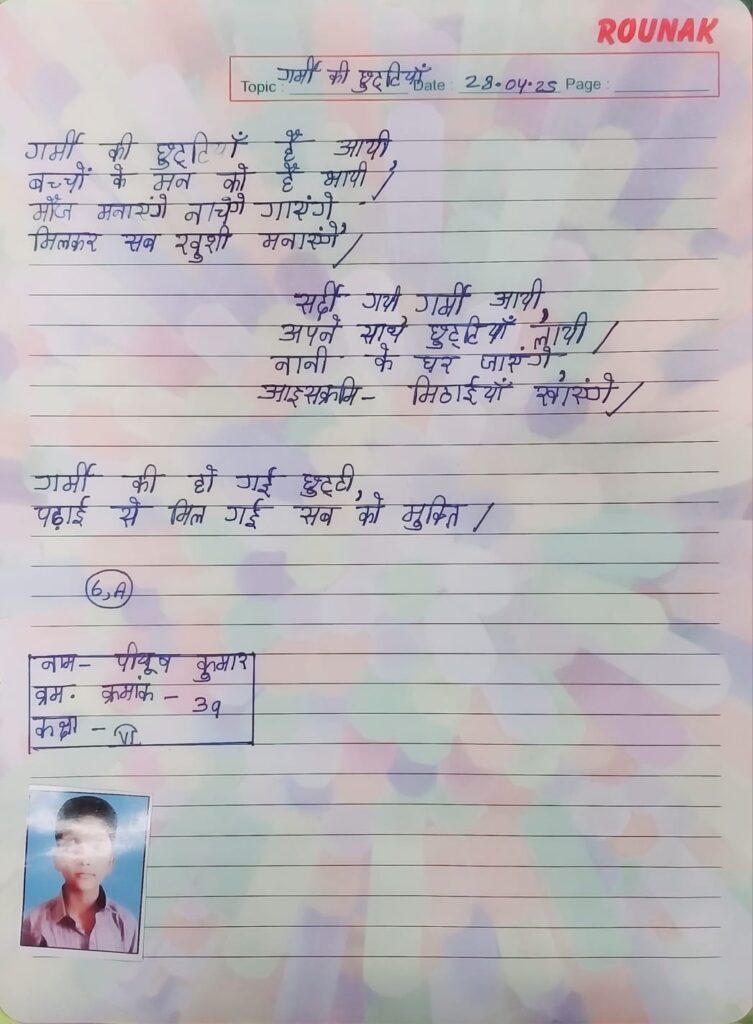 ROUNAK
Topic : गर्मी की छुट्टियाँ Date : 28.04.25 Page :
गर्मी की छुट्टियाँ है आयी,
बच्चों के मन को है भायी /
मौज मनाएंगे नाचेंगे गाएंगे
मिलकर सब खुशी मनाएंगे, /
सर्दी गयी गर्मी आयी,
अपने साथ छुट्टियाँ लायी /
नानी के घर जाएंगे,
आइसक्रमि- मिठाईयाँ खाएंगे /
गर्मी की हो गई छुट्टी,
पढ़ाई से मिल गई सब को मुक्ति /
6,A
नाम- पीयूष कुमार
क्रम. क्रमांक - 39
कक्षा - VI